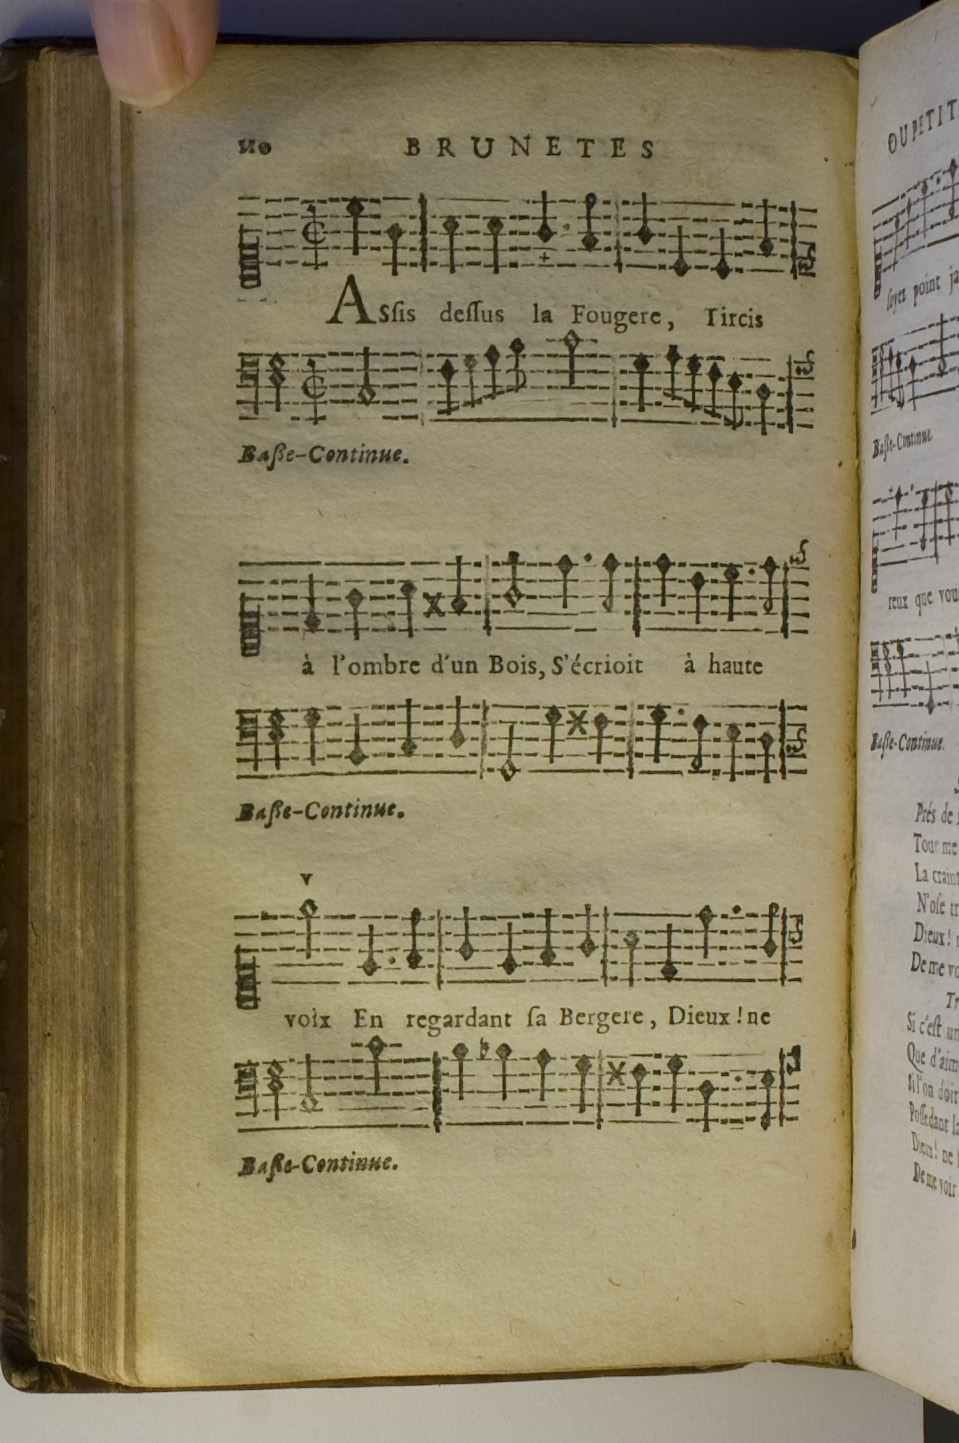 BRUNETES
ASsis dessus la Fougere, Tircis
Basse-Continue.
à l'ombre d'un Bois, S'écrioit à haute
Basse-Continue.
voix En regardant sa Bergere, Dieux! ne
Basse-Continue.
OU PETIT
soyez point ja
Basse-Continue.
reux que vou
Basse-Continue.
Prés de
Tout me
La craint
N'ose tr
Dieux!
De me vo
Tr
Si c'est un
Que d'aim
Si l'on doit
Possedant la
Dieux! ne
De me voir